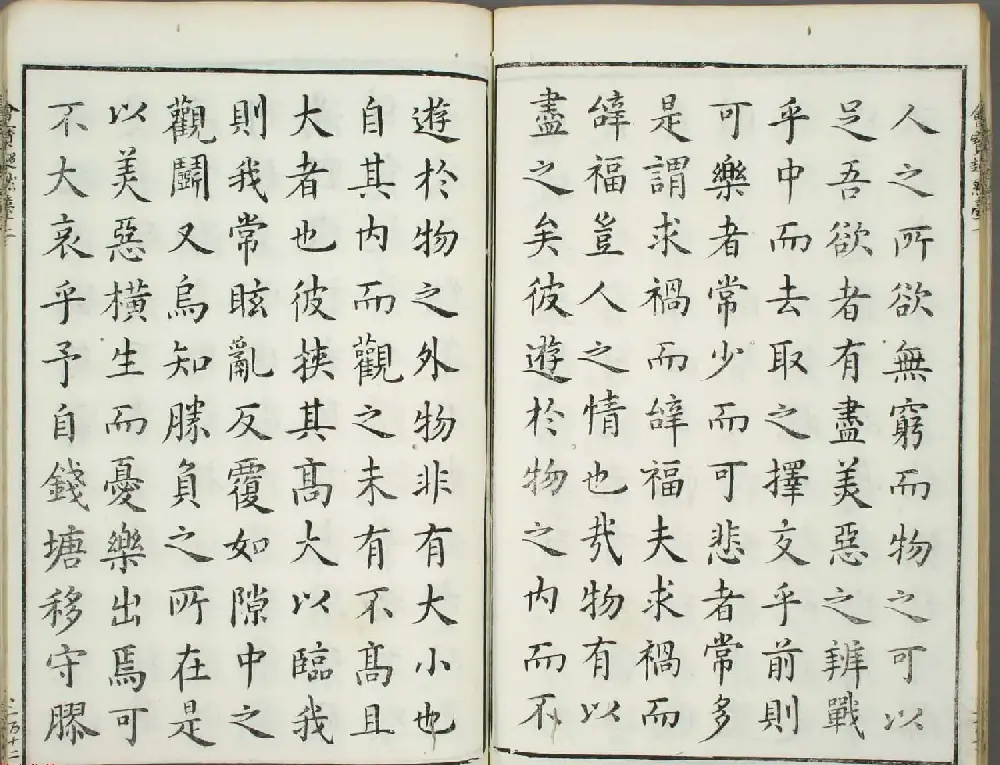 人之所欲無窮而物之可以
足吾欲者有盡美惡之辨戰
乎中而去取之擇交乎前則
可樂者常少而可悲者常多
是謂求禍而辭福夫求禍而
辭福豈人之情也哉物有以
盡之矣彼遊於物之内而不
遊於物之外物非有大小也
自其内而觀之未有不髙且
大者也彼挾其髙大以臨我
則我常眩亂反覆如隙中之
觀鬬又烏知勝負之所在是
以美惡橫生而憂樂出焉可
不大哀乎予自錢塘移守膠